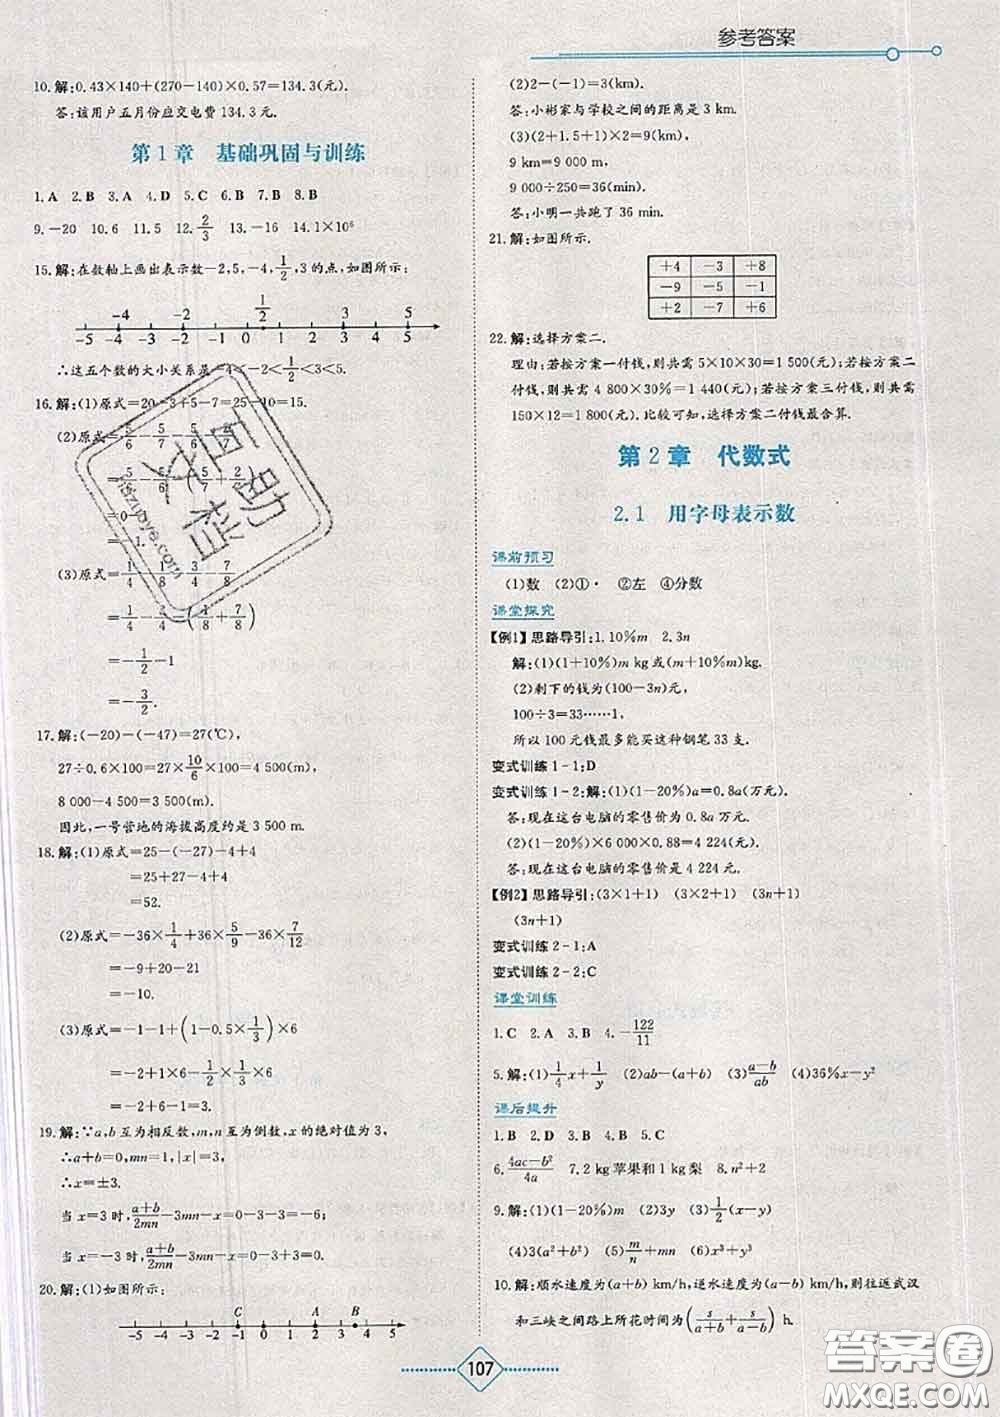 参考答案
10.解:0.43×140+(270-140)×0.57=134.3(元).
答:该用户五月份应交电费 134.3 元.
第1章 基础巩固与训练
1.A 2.B 3.A 4.D 5.C 6.B 7.B 8.B
9.-20 10.6 11.5 12.2/3 13.-16 14.1×10⁶
15.解:在数轴上画出表示数-2,5,-4,1/2,3的点,如图所示:
-4 -2 1/2 3 5
-5 -4 -3 -2 -1 0 1 2 3 4 5
∴这五个数的大小关系是-4<-2<1/2<3<5.
16.解:(1)原式=20-3+5-7=25-10=15.
(2)原式=5/6-5/7-5/6-2/7
=5/6-5/6-(5/7+2/7)
=0-1
=-1.
(3)原式=1/4-1/8-3/4-7/8
=1/4-3/4-(1/8+7/8)
=-1/2-1
=-3/2.
17.解:(-20)-(-47)=27(℃),
27÷0.6×100=27×10/6×100=4 500(m),
8 000-4 500=3 500(m).
因此,一号营地的海拔高度约是 3 500 m.
18.解:(1)原式=25-(-27)-4+4
=25+27-4+4
=52.
(2)原式=-36×1/4+36×5/9-36×7/12
=-9+20-21
=-10.
(3)原式=-1-1+(1-0.5×1/3)×6
=-2+1×6-1/2×1/3×6
=-2+6-1=3.
19.解:∵a,b互为相反数,m,n互为倒数,x的绝对值为3,
∴a+b=0,mn=1,|x|=3,
∴x=±3.
当x=3时,(a+b)/2mn-3mn-x=0-3-3=-6;
当x=-3时,(a+b)/2mn-3mn-x=0-3+3=0.
20.解:(1)如图所示:
C A B
-5 -4 -3 -2 -1 0 1 2 3 4 5
(2)2-(-1)=3(km).
答:小彬家与学校之间的距离是 3 km.
(3)(2+1.5+1)×2=9(km),
9 km=9 000 m,
9 000÷250=36(min).
答:小明一共跑了 36 min.
21.解:如图所示.
+4 -3 +8
-9 -5 -1
+2 -7 +6
22.解:选择方案二.
理由:若按方案一付钱,则共需5×10×30=1 500(元);若按方案二
付钱,则共需 4 800×30%=1 440(元);若按方案三付钱,则共需
150×12=1 800(元).比较可知,选择方案二付钱最合算.
第2章 代数式
2.1 用字母表示数
课前预习
(1)数 (2)①· ②左 ④分数
课堂探究
【例1】思路导引:1.10%m 2.3n
解:(1)(1+10%)m kg或(m+10%m)kg.
(2)剩下的钱为(100-3n)元,
100÷3=33……1,
所以 100元钱最多能买这种钢笔 33 支.
变式训练1-1:D
变式训练1-2:解:(1)(1-20%)a=0.8a(万元).
答:现在这台电脑的零售价为 0.8a 万元.
(2)(1-20%)×6 000×0.88=4 224(元).
答:现在这台电脑的零售价是 4 224 元.
【例2】思路导引:(3×1+1) (3×2+1) (3n+1)
(3n+1)
变式训练2-1:A
变式训练2-2:C
课堂训练
1.C 2.A 3.B 4.-122/11
5.解:(1)1/4x+1/y (2)ab-(a+b) (3)(a-b)/ab (4)36%x-y²
课后提升
1.B 2.D 3.A 4.B 5.C
6.(4ac-b²)/4a 7.2 kg苹果和1 kg梨 8.n²+2
9.解:(1)(1-20%)x (2)3y (3)1/2(x-y)
(4)3(a²+b²) (5)m/n+mn (6)x³-y²
10.解:顺水速度为(a+b) km/h,逆水速度为(a-b) km/h,则往返武汉
和三峡之间路上所花时间为(s/(a+b)+s/(a-b)) h.
107
作业帮
答案圈
MXQE.COM